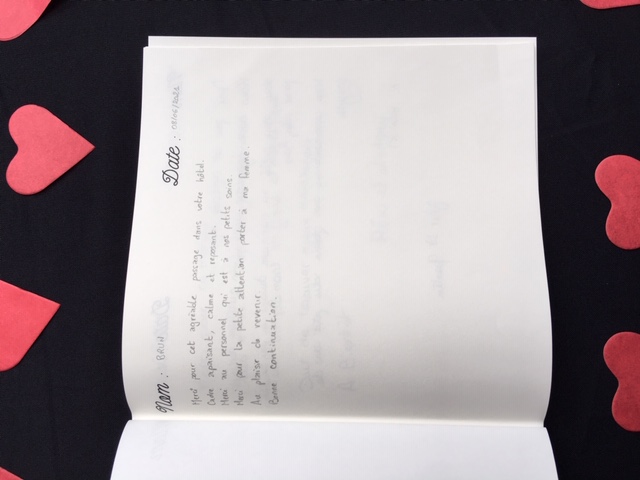 Nom : BRUN Date : 08/06/2021
Merci pour cet agréable passage dans votre hôtel.
Cadre apaisant, calme et reposant.
Merci au personnel qui est à nos petits soins.
Merci pour la petite attention porter à ma femme.
Au plaisir de revenir.
Bonne continuation.